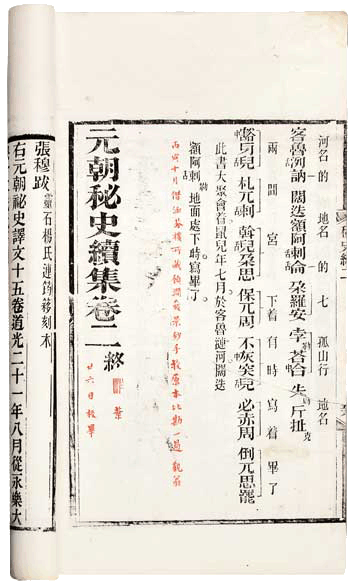 河名的 地名的 七 孤山行 地名
客魯漣訥 闊迭額阿剌侖 朶羅安 孛答合 失斤扯克
兩間 宮 下着有時 寫着 畢了
札兀剌 斡兒朶思 保兀周 必赤周 倒兀思罷
此書大聚會着鼠兒年七月於客魯漣河闊迭
額阿剌勒地面處下時寫畢了
十月借涵芬樓所藏顧澗蘋
元朝秘史續集卷二終
廿六日校畢
張穆跋 靈石楊氏連筠簃刻本
右元朝祕史譯文十五卷道光二十一年八月從永樂大